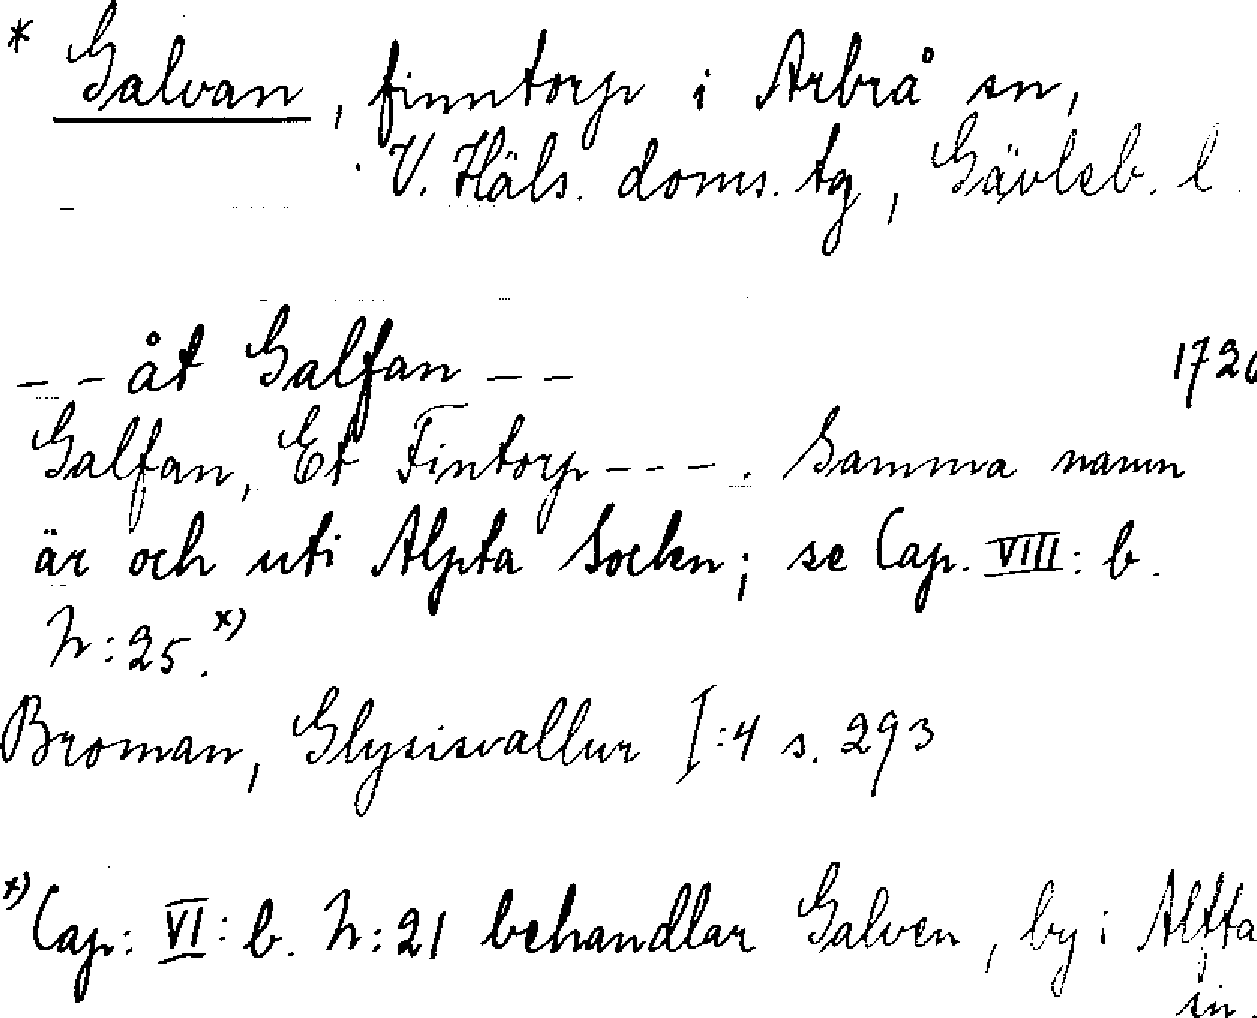 * Galvan, finntorp i Arbrå sn,
V. Häls. doms. tg, Gävleb. l.
– – åt Galfan – – 1720
Galfan, Et Fintorp – – – . Samma namn
är och uti Alpta Sockn; se Cap. VIII: b.
N: 25. x)
Broman, Glysisvallur I:4 s. 293
x) Cap: VI: b. N: 21 behandlar Galven, by i Alfta
sn.